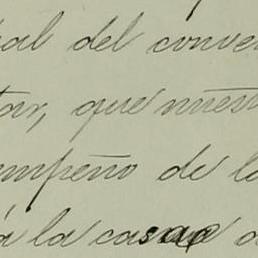 al del conve
tar, que nuest
mpeño de l
á la casa